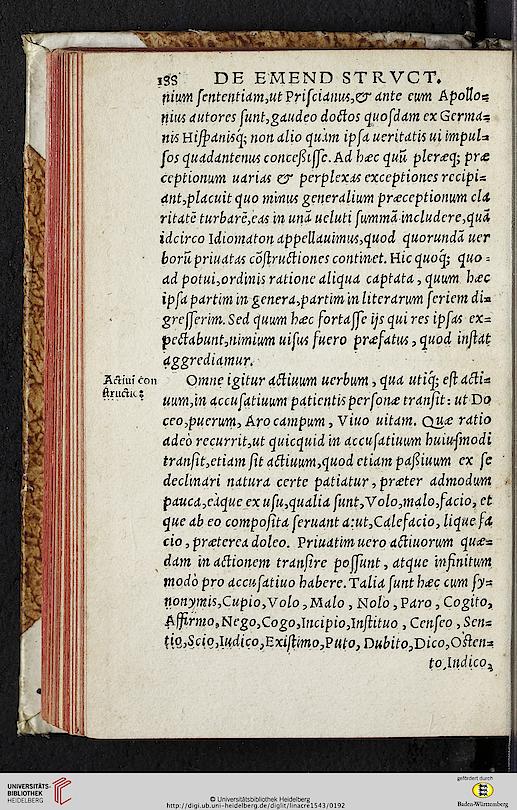 188 DE EMEND STRVCT.
nium sententiam, ut Priscianus, & ante eum Apollo=
nius autores sunt, gaudeo doctos quosdam ex Germa=
nis Hispanisq; non alio quàm ipsa ueritatis ui impul=
sos quadantenus concessisse. Ad hæc quũ pleræq; præ
ceptionum uarias & perplexas exceptiones recipi=
ant, placuit quo minus generalium præceptionum cla
ritatẽ turbarẽ, eas in unã ueluti summã includere, quã
idcirco Idiomaton appellauimus, quod quorundã uer
borũ priuatas cõstructiones continet. Hic quoq; quo=
ad potui, ordinis ratione aliqua captata, quum hæc
ipsa partim in genera, partim in literarum seriem di=
gresserim. Sed quum hæc fortasse ijs qui res ipsas ex=
pectabunt, nimium uisus fuero præfatus, quod instat
aggrediamur.
Actiui con
structio
Omne igitur actiuum uerbum, qua utiq; est acti=
uum, in accusatiuum patientis personæ transit: ut Do
ceo, puerum, Aro campum, Viuo uitam. Quæ ratio
adeò recurrit, ut quicquid in accusatiuum huiusmodi
transit, etiam sit actiuum, quod etiam passiuum ex se
declinari natura certe patiatur, præter admodum
pauca, eàque ex usu, qualia sunt, Volo, malo, facio, et
que ab eo composita seruant a: ut, Calefacio, lique fa
cio, præterea doleo. Priuatim uero actiuorum quæ=
dam in actionem transire possunt, atque infinitum
modò pro accusatiuo habere. Talia sunt hæc cum sy=
nonymis, Cupio, Volo, Malo, Nolo, Paro, Cogito,
Affirmo, Nego, Cogo, Incipio, Instituo, Censeo, Sen=
tio, Scio, Iudico, Existimo, Puto, Dubito, Dico, Osten=
to, Indico,
UNIVERSITÄTS-
BIBLIOTHEK
HEIDELBERG
© Universitätsbibliothek Heidelberg
http://digi.ub.uni-heidelberg.de/diglit/linacre1543/0192
gefördert durch
Baden-Württemberg